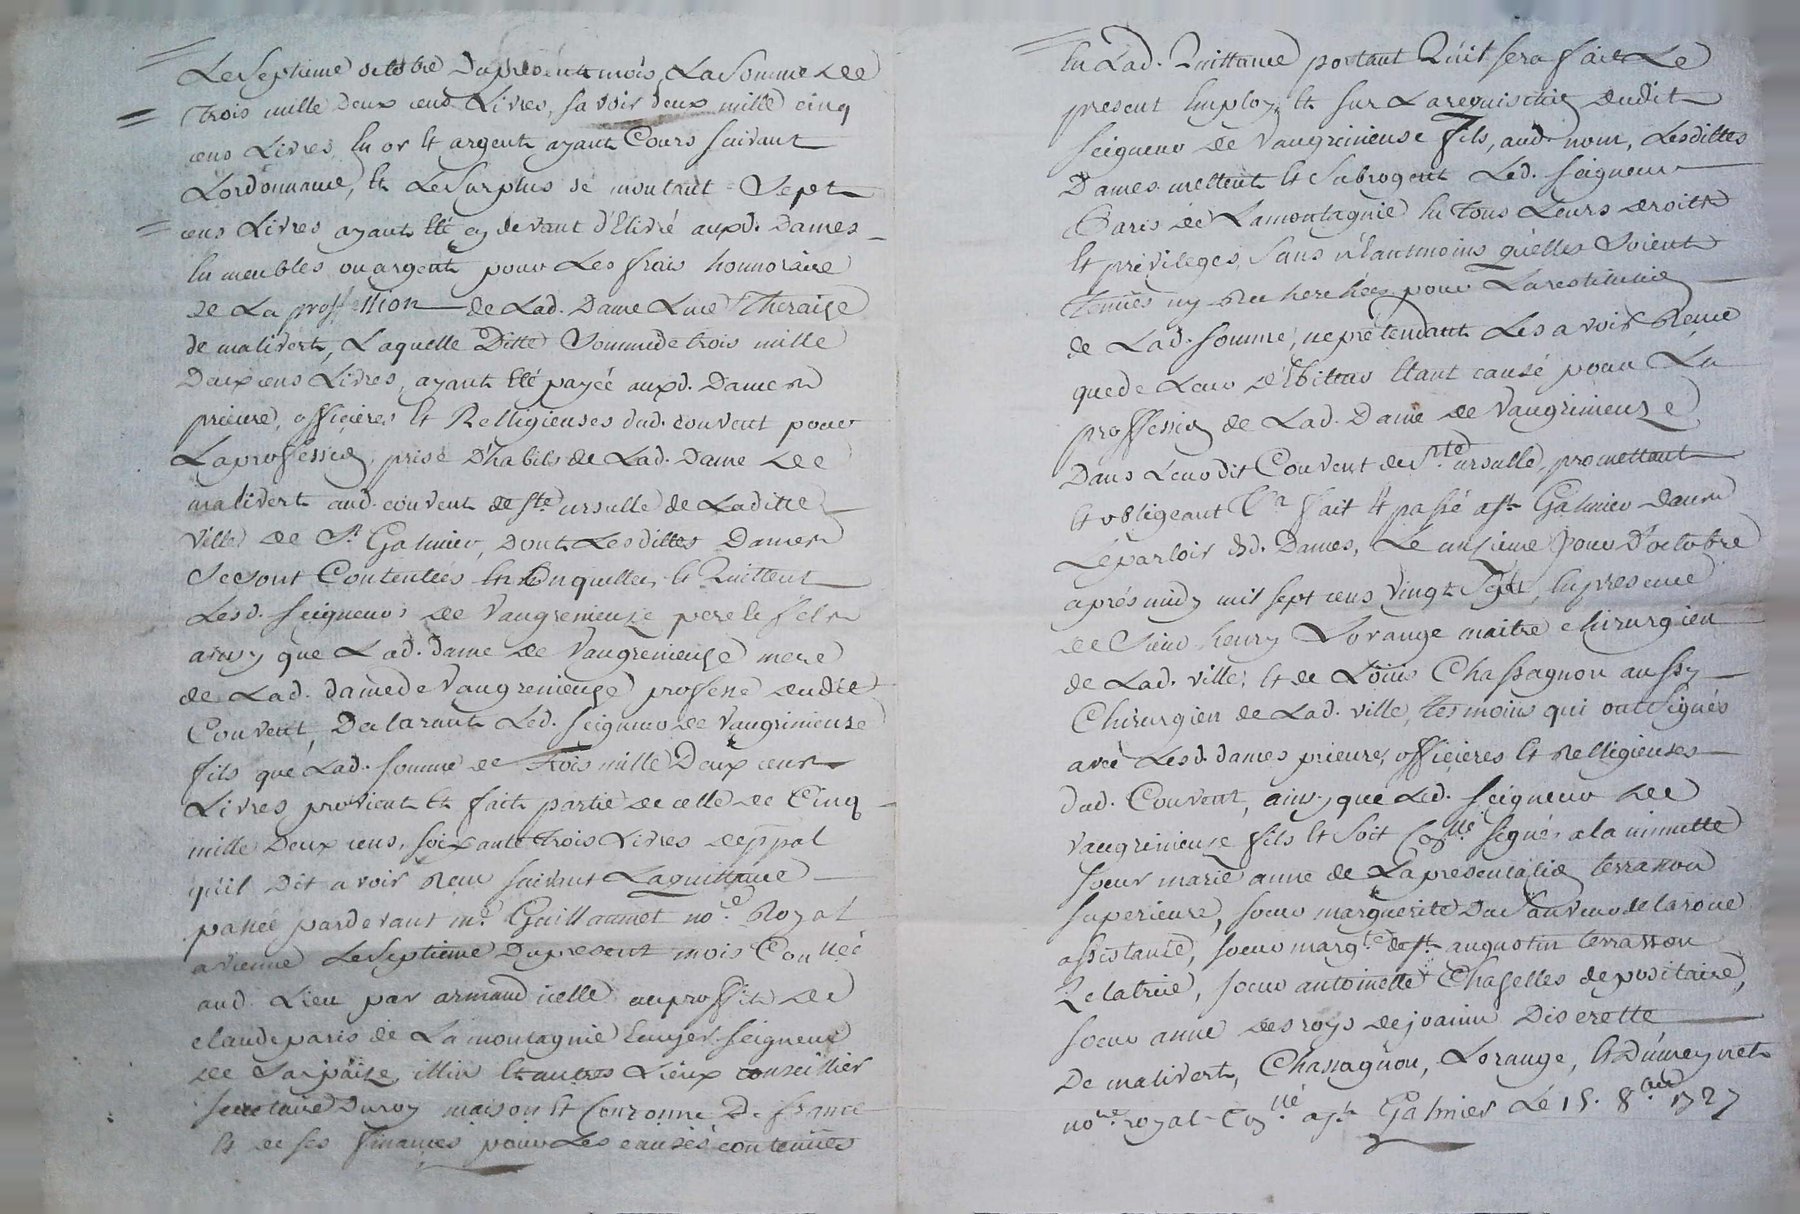 Le Septieme octobre Du present mois, La Somme de
Trois mille Deux cens Livres, savoir deux mille cinq
cens Livres En or Et argent ayant Cours suivant
L'ordonnance, Et Le Surplus se montant Sept
cens Livres ayant Eté cy devant délivré auxd. Dames
En meubles ou argent pour Les frais honnoraire
de La proffession de Lad. Dame Luce Theraise
de malivert, Laquelle Ditte Somme de trois mille
Deux cens Livres, ayant Eté payée auxd. Dames
prieure, officieres Et Relligieuses dud. couvent pour
La profession, prise D'habits de Lad. Dame de
malivert aud. couvent de Ste. ursulle de Laditte
ville de St Galmier, Dont Lesdittes Dames
Se sont Contentées Et Quittent
Lesd. seigneurs de Vaugrenieuze pere Et fils
ainsy que Lad. dame de Vaugrenieuse mere
de Lad. dame de Vaugrenieuse professe dudit
Couvent, Declarant Led. seigneur de Vaugrinieuse
fils que Lad. somme de Trois mille Deux cens
Livres provient Et fait partie de celle de Cinq
mille Deux cens, soixante trois Livres de ppal
qu'il Dit avoir Reçu suivant La quittance
passée pardevant me. Guillaumot nore. Royal
a vienne Le Septieme Du present mois
aud. Lieu par armand icelle au proffit de
claude paris de La montagnie Ecuyer seigneur
de illin Et autres Lieux conseillier
secretaire Du roy maison Et Couronne De france
Et de ses finances pour Les causes contenuës
En Lad. Quittance portant Qu'il sera fait Le
present Employ, Et sur La requisition dudit
seigneur de Vaugrinieuse fils, aud. nom, Lesdittes
Dames mettent Et Subrogent Led. seigneur
Paris de Lamontagnie En Tous Leurs droits
Et privileges, Sans néantmoins qu'elles Soient
Tenuës ny Recherchées pour La restitution
de Lad. somme, ne prétendant Les avoir Reçue
que de Leur débitteur Etant causé pour La
proffession de Lad. Dame de Vaugrinieuze
Dans Leurdit Couvent de Ste ursulle, promettant
Et obligeant Ca fait Et passé a St Galmier dans
Le parloir desd. Dames, Le unzieme Jour D'octobre
aprés midy mil sept cens vingt Sept, En presence
de Sieur henry Lorange maitre chirurgien
de Lad. ville, Et de Loüis Chassagnon aussy
Chirurgien de Lad. ville, tesmoins qui ont Signés
avec Lesd. dames prieure, officieres Et Relligieuses
dud. Couvent, ainsy que Led. seigneur de
Vaugrinieuze fils Et soit Collé. signés a la minutte
soeur marie anne de La presentation terrasson
superieure, soeur marguerite Du Sauveur de laroüe
assistante, soeur margte. de St. augustin terrasson
Zelatrice, soeur antoinette Chaselles depositaire,
soeur anne des roys dejoanin Discrette
De malivert, Chassagnon, Lorange, Et Dumeynet
nore. royal - a St Galmier Le 15. 8bre 1727